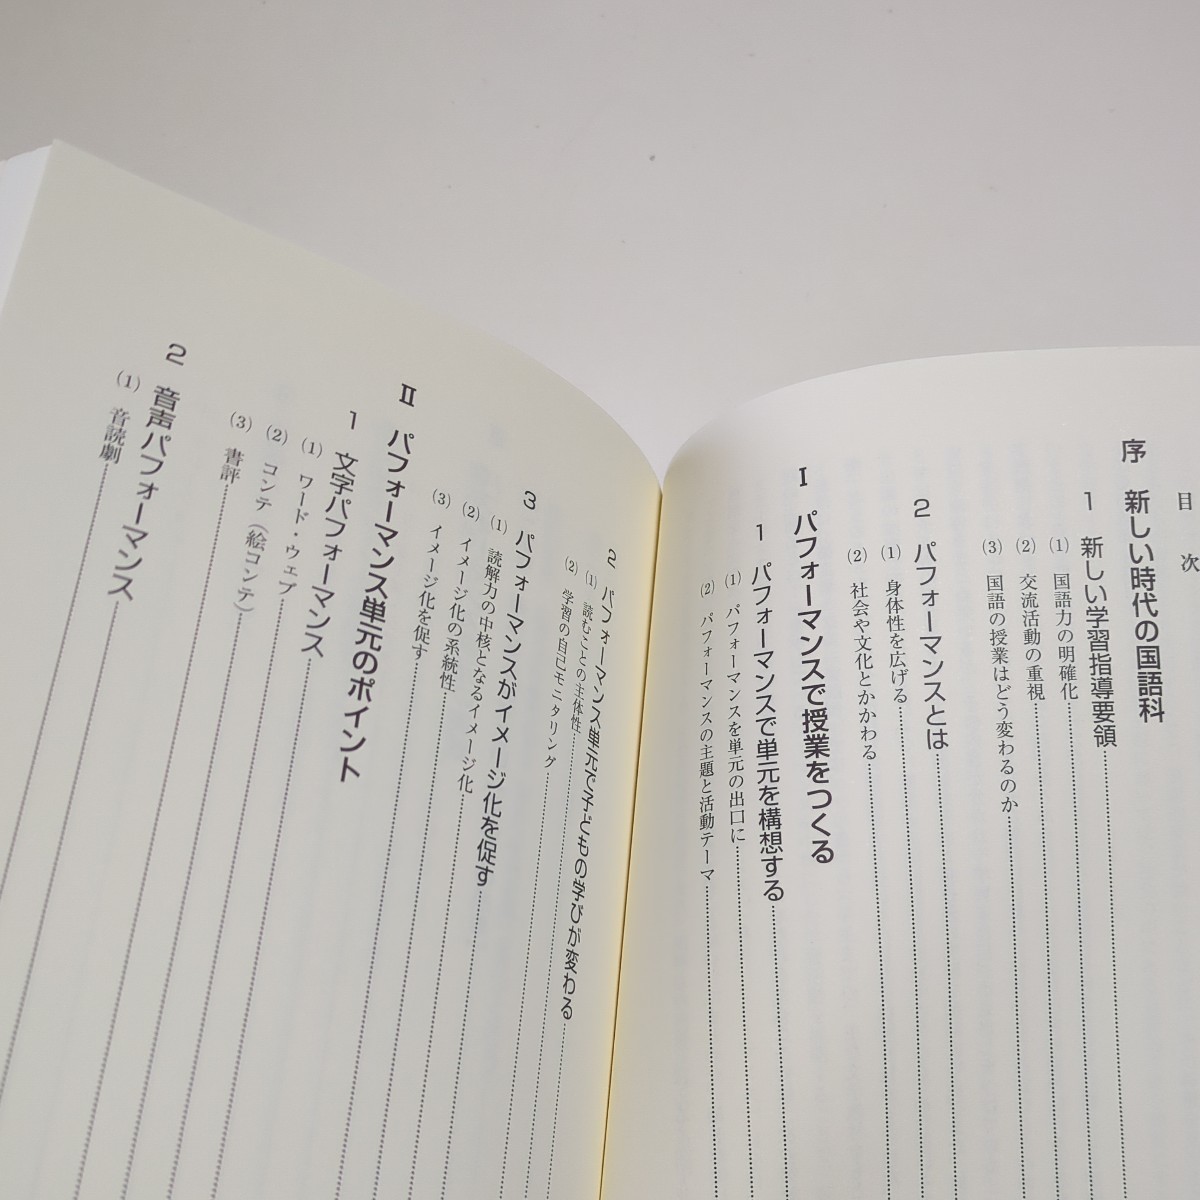 目次
序 新しい時代の国語科
1 新しい学習指導要領
(1) 国語力の明確化
(2) 交流活動の重視
(3) 国語の授業はどう変わるのか
2 パフォーマンスとは
(1) 身体性を広げる
(2) 社会や文化とかかわる
Ⅰ パフォーマンスで授業をつくる
1 パフォーマンスで単元を構想する
(1) パフォーマンスを単元の出口に
(2) パフォーマンスの主題と活動テーマ
2 パフォーマンス単元で子どもの学びが変わる
(1) 読むことの主体性
(2) 学習の自己モニタリング
3 パフォーマンスがイメージ化を促す
(1) 読解力の中核となるイメージ化
(2) イメージ化の系統性
(3) イメージ化を促す
Ⅱ パフォーマンス単元のポイント
1 文字パフォーマンス
(1) ワード・ウェブ
(2) コンテ（絵コンテ）
(3) 書評
2 音声パフォーマンス
(1) 音読劇